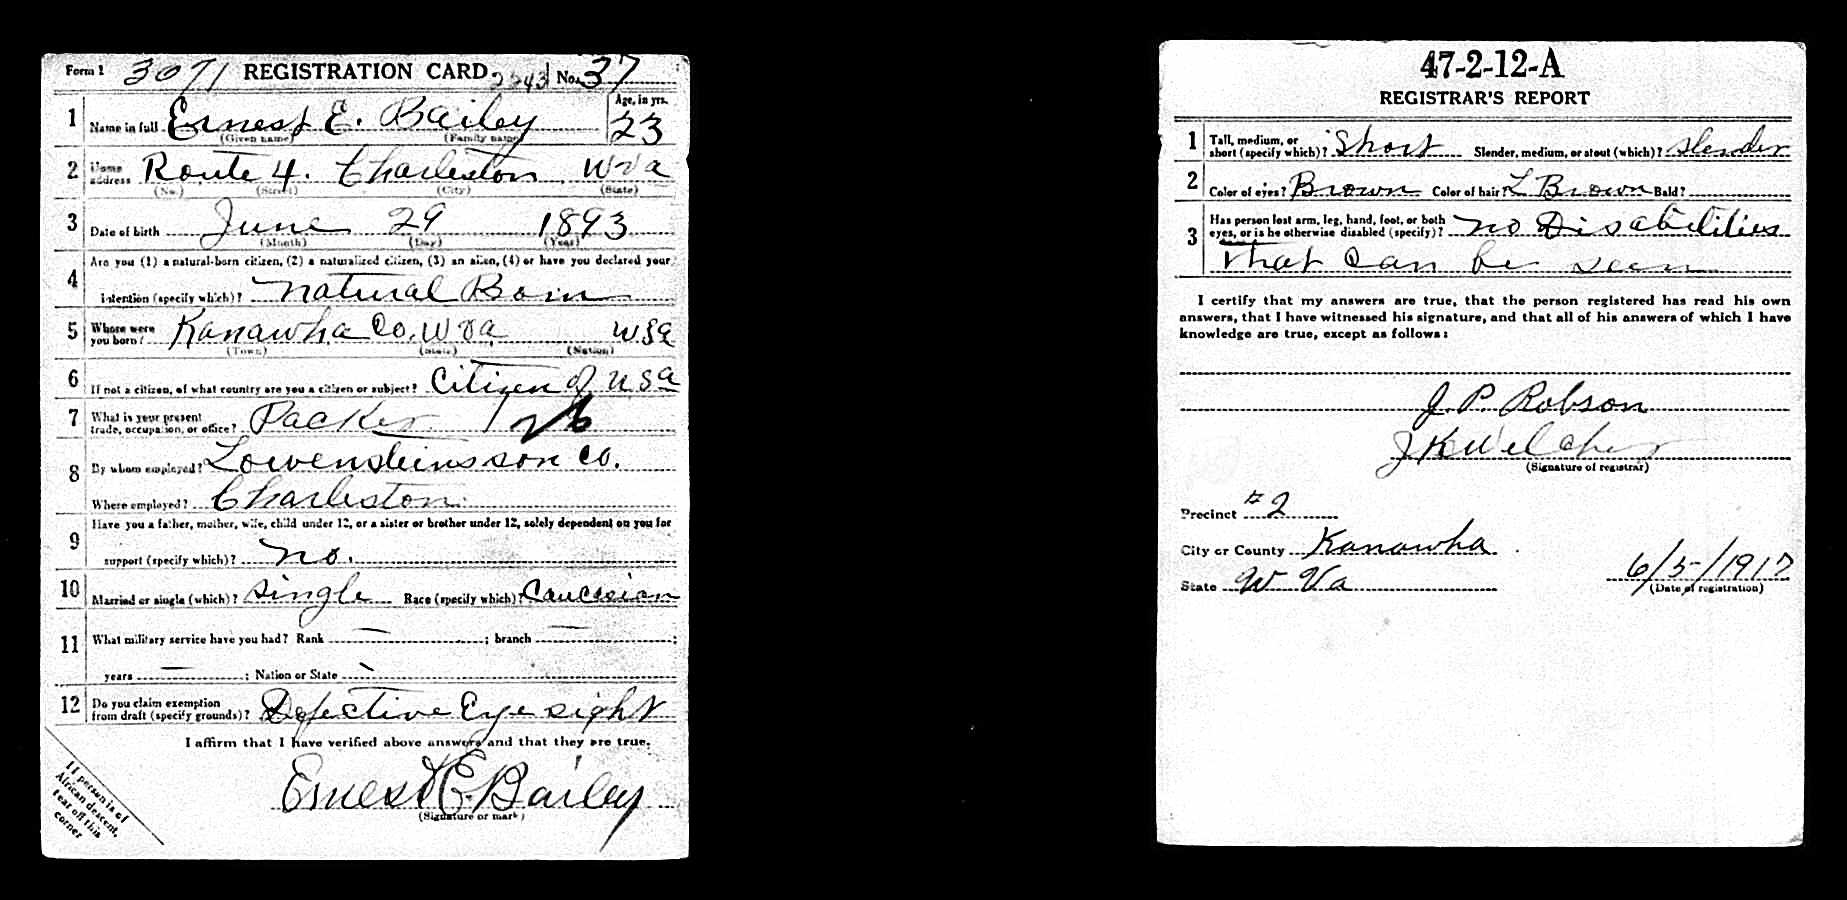 Form 1 3071 REGISTRATION CARD 2543 No. 37
1 Name in full Ernest E. Bailey Age, in yrs. 23
(Given name) (Family name)
2 Home address Route 4. Charleston W Va
(No.) (Street) (City) (State)
3 Date of birth June 29 1893
(Month) (Day) (Year)
Are you (1) a natural-born citizen, (2) a naturalized citizen, (3) an alien, (4) or have you declared your
4 intention (specify which)? Natural Born
5 Where were you born? Kanawha Co. W Va USA
(Town) (State) (Nation)
6 If not a citizen, of what country are you a citizen or subject? Citizen of USA
7 What is your present trade, occupation, or office? Packer
8 By whom employed? Lowensteins son Co.
Where employed? Charleston
Have you a father, mother, wife, child under 12, or a sister or brother under 12, solely dependent on you for
9 support (specify which)? no.
10 Married or single (which)? Single Race (specify which)? Caucasian
11 What military service have you had? Rank — ; branch — ;
years — ; Nation or State —
12 Do you claim exemption from draft (specify grounds)? Defective Eye sight
I affirm that I have verified above answers and that they are true.
Ernest E. Bailey
(Signature or mark)
If person is of
African descent,
tear off this
corner
47-2-12-A
REGISTRAR'S REPORT
1 Tall, medium, or short (specify which)? Short Slender, medium, or stout (which)? Slender
2 Color of eyes? Brown Color of hair? L Brown Bald?
3 Has person lost arm, leg, hand, foot, or both eyes, or is he otherwise disabled (specify)? no Disabilities
that can be seen
I certify that my answers are true, that the person registered has read his own
answers, that I have witnessed his signature, and that all of his answers of which I have
knowledge are true, except as follows:
J. P. Robson
J K Welcher
(Signature of registrar)
Precinct #2
City or County Kanawha
State W Va 6/5/1917
(Date of registration)